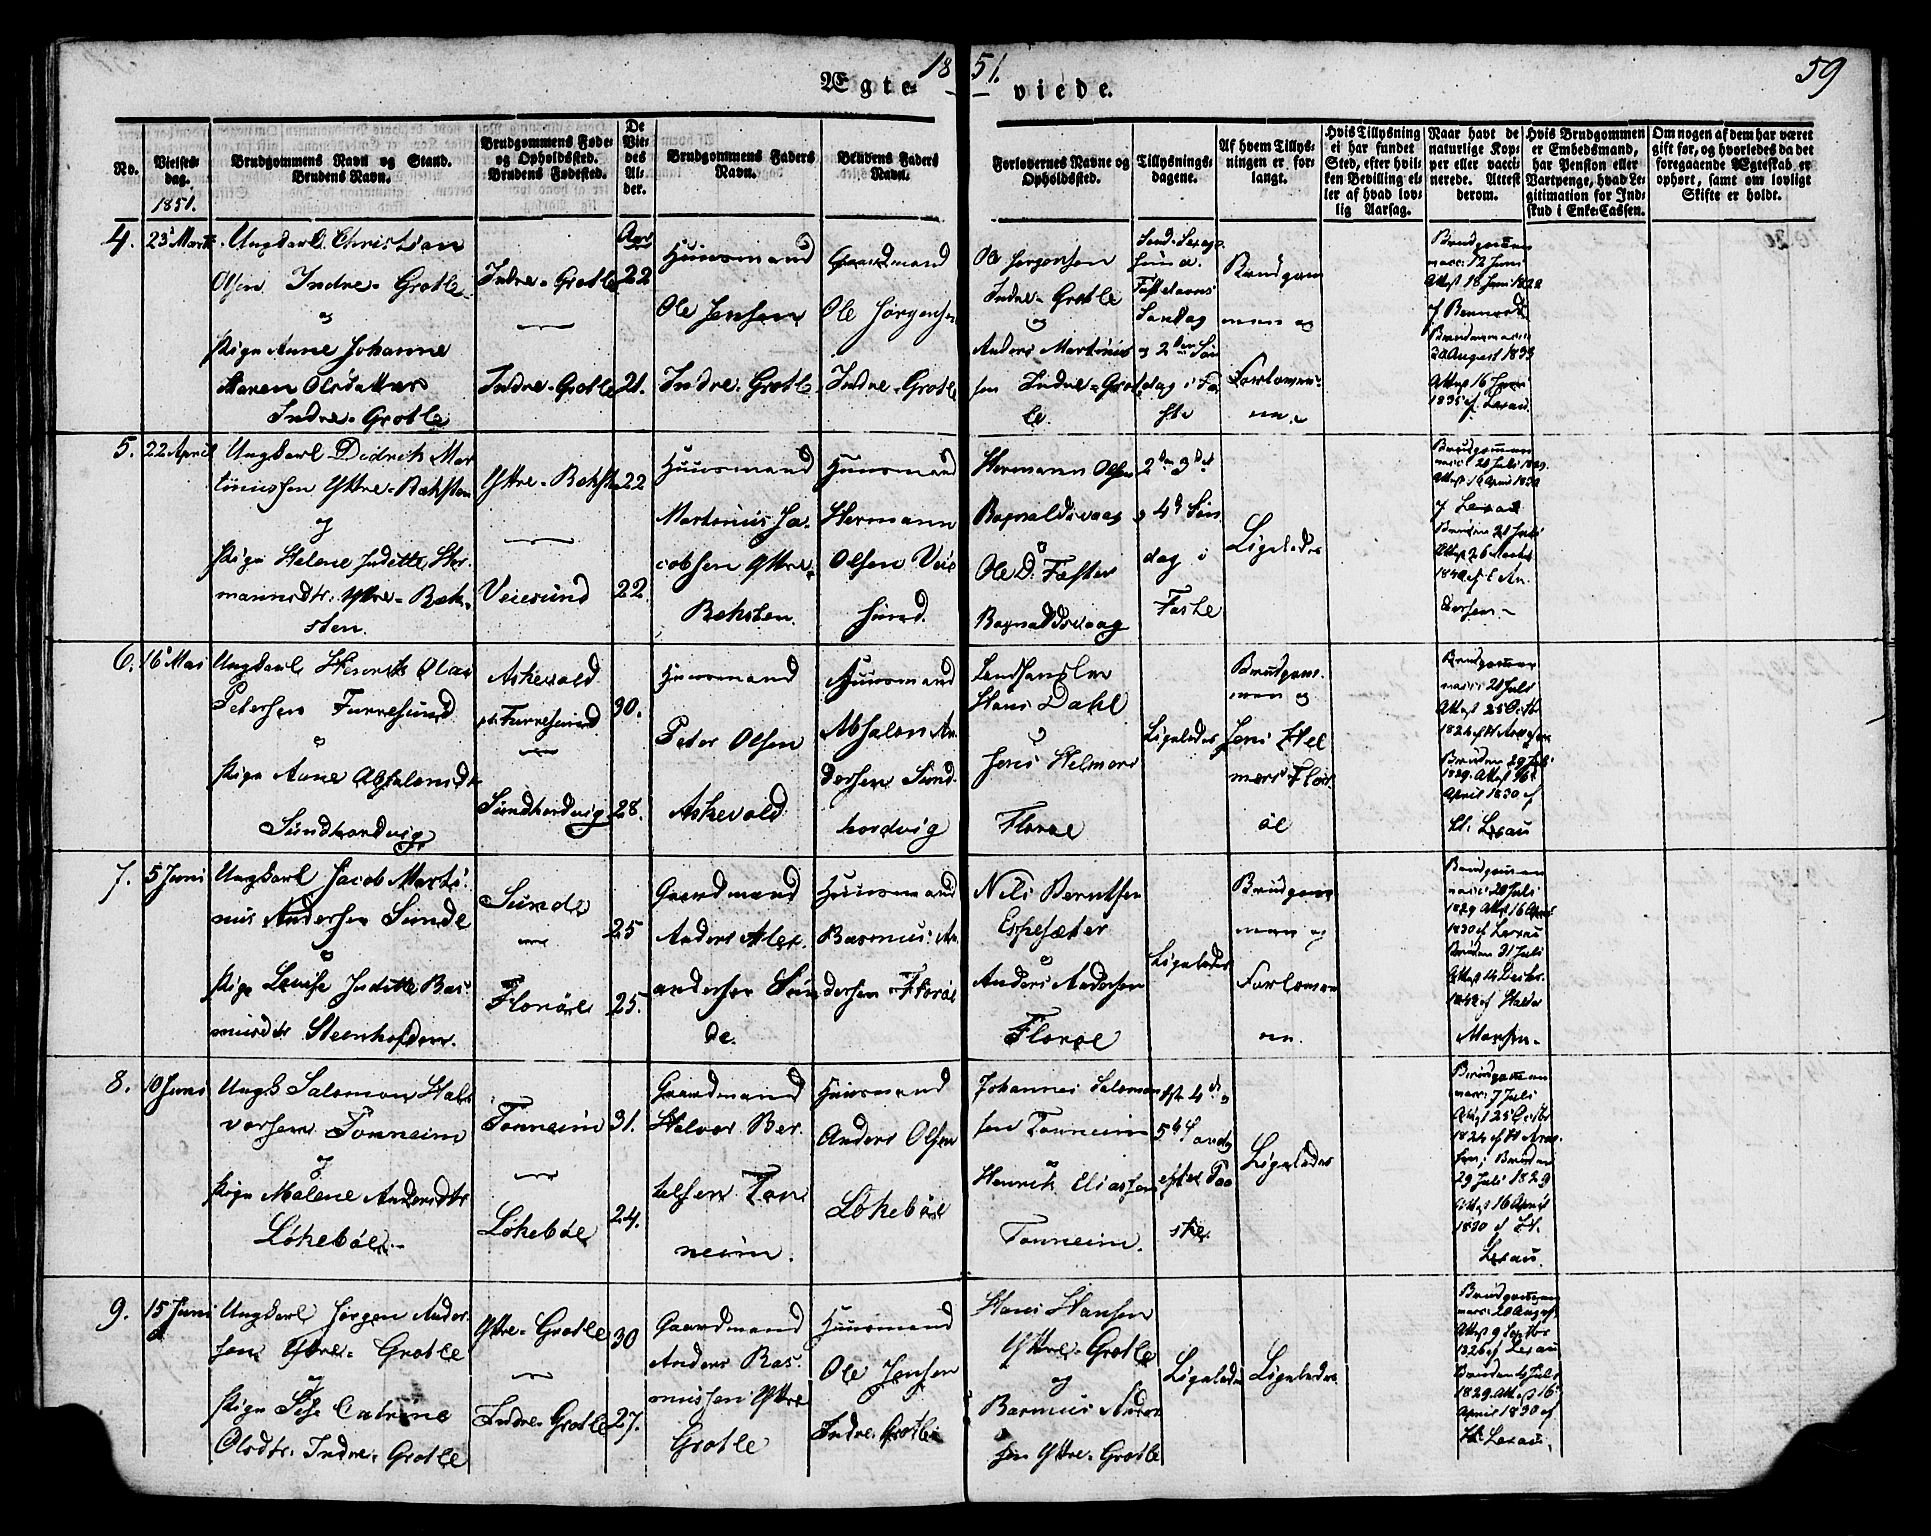 1851.
59
Ægteviede.
No.
Vielses-
dag.
1851.
Brudgommens Navn og Stand.
Brudens Navn.
Brudgommens Føde-
og Opholdssted.
Brudens Fødested.
De
Vie-
des
Al-
der.
Brudgommens Faders
Navn.
Brudens Faders
Navn.
Forlovernes Navne og
Opholdsted.
Tillysnings-
dagene.
Af hvem Tillys-
ningen er for-
langt.
Hvis Tillysning
ei har fundet
Sted, efter hvil-
ken Bevilling el-
ler af hvad lov-
lig Aarsag.
Naar havt de
naturlige Kop-
per eller vacci-
nerede. Attest
derom.
Hvis Brudgommen
er Embedsmand,
har Pension eller
Vartpenge, hvad Le-
gitimation for Ind-
skud i Enke-Cassen.
Om nogen af dem har været
gift før, og hvorledes da det
foregaaende Ægteskab er
ophørt, samt om lovligt
Skifte er holdt.
4.
23 Marts
Ungkarl Christian
Olsen Indre-Grotle
og
Pige Anne Johanne
Maren Olsdatter
Indre-Grotle
Indre-Grotle
Indre-Grotle
Aar
22
21.
Huusmand
Ole Jensen
Indre-Grotle
Gaardmand
Ole Jørgensen
Indre-Grotle
Ole Jørgensen
Indre-Grotle
og
Anders Martinus
sen Indre-Grot
le.
Fastelavns
Søndag
og 2den Søn
dag i Fa
ste
Brudgom
men og
Forlover-
ne.
Brudgommen
vacc: 12 Juni
Attest 18 Juni
Bruden vacc:
20 August 1833
Attest 16
1835 af Lexau.
5.
22 April
Ungkarl Didrik Mar
tinussen Yttre-Ræksten
og
Pige Helene Juditte Her
mannsdtr. Yttre-Ræk-
sten.
Yttre-Ræksten
Veiesund
22
22.
Huusmand
Martinus Ja-
cobsen Yttre-
Ræksten.
Huusmand
Hermann
Olsen Veie
sund.
Hermann Olsen
Rognaldsvaag
Ole D. Fæster
Rognaldsvaag
2den 3die
og 4de Søn
dag i
Faste
Ligeledes
Brudgommen
vacc: 21 Juli 1829
Attest 16 April 1830
af Lexau
Bruden 21 Juli
Attest 26
6.
16 Mai
Ungkarl Henrik Olai
Petersen Furresund
Pige Anne Absalonsdtr
Sundhordvig
Askevold
pt. Furresund
Sundhordvig
30.
28.
Huusmand
Peter Olsen
Askevold
Huusmand
Absalon An-
dersen Sund-
hordvig
Landhandler
Hans Dahl
Jens Helmers
Florøe
Ligeledes
Brudgom-
men og
Jens Hel
mers Flor
øe
Brudgommen
vacc: 21 Juli
Attest 25 Octbr
1824 af H
Bruden 29 Juli
1829. Attest 16
April 1830 af
Kl. Lexau
7.
5 Juni
Ungkarl Jacob Marti-
nus Andersen Sunde
Pige Louise Juditte Ras-
musdtr Steenhofden.
Sunde
Florøe
25
25.
Gaardmand
Anders Alex-
andersen Sun
de.
Huusmand
Rasmus An-
dersen Florøe
Nils Berntsen
Espesæter
Anders Andersen
Florøe
Ligeledes
Brudgom
men og
Forlovern
ne.
Brudgommen
vacc: 20 Juli
1829 Attest 16 April
1830 af Lexau
Bruden 31 Juli
Attest 14 Decbr.
8.
10 Juni
Ungk Salomon Hal
vorsen Tonneim
og
Pige Malene Andersdtr
Løkebøe.
Tonneim
Løkebøe
31.
24.
Gaardmand
Halvor Ber-
telsen Ton
neim.
Huusmand
Anders Olsen
Løkebøe
Johannes Salomon
sen Tonneim
Henrik Eliassen
Tonneim.
4de
5te Søndag
efter Paa
ske
Ligeledes
Brudgommen
vacc: 7 Juli
Attest 25 Octbr
1824 af H
Bruden
29 Juli 1829
Attest 16 April
1830 af Kl.
Lexau.
9.
15 Juni
Ungkarl Jørgen Ander-
sen Yttre-Grotle
og
Pige Catrine
Olsdtr. Indre-Grotle
Yttre-Grotle
Indre-Grotle
30
27.
Gaardmand
Anders Ras-
mussen Yttre
Grotle
Huusmand
Ole Jensen
Indre-Grotle
Hans Hansen
Yttre-Grotle
og
Rasmus Ander
sen Yttre-Grotle
Ligeledes
Ligeledes.
Brudgommen
vacc: 20 August
Attest 9 Septbr
1826 af Lexau
Bruden Juli
1829. Attest 16
April 1830 af
Kl. Lexau.